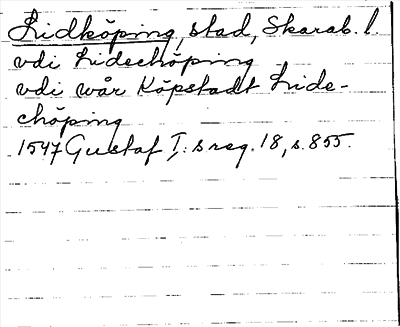 Lidköping, stad, Skarab. l.
vdi Lidechöping
vdi wår Köpstadt Lide-
chöping
1547 Gustaf I: s reg. 18, s. 855.